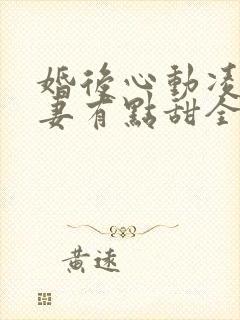 婚後心動凌
妻有點甜全
黃遠